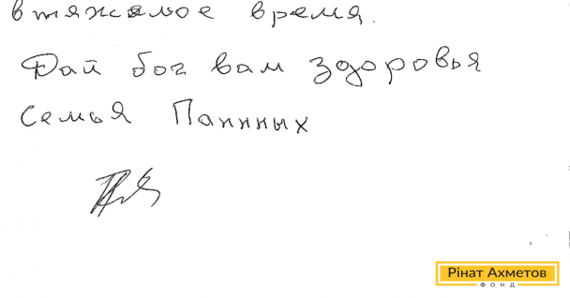 втяжелое время.
Дай бог вам здоровья
Семья Паннных
Рінат Ахметов
ФОНД